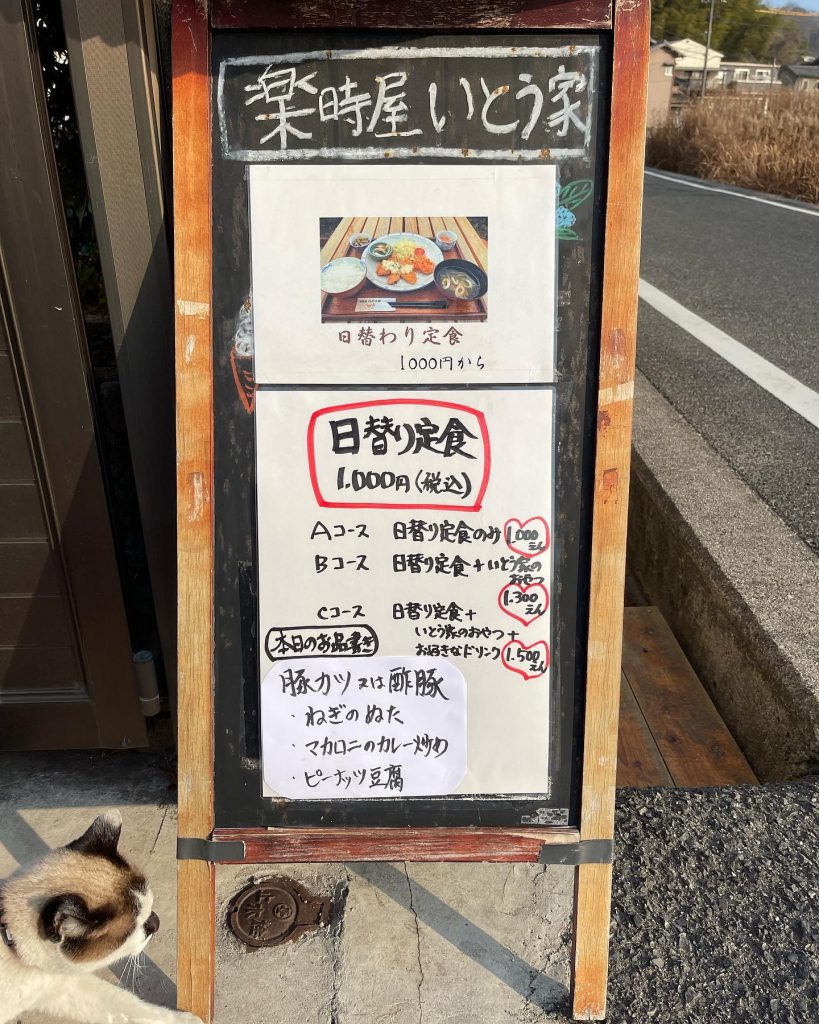 楽時屋いとう家
日替わり定食
1000円から
日替り定食
1.000円(税込)
Aコース 日替り定食のみ 1.000えん
Bコース 日替り定食+いとう家のおやつ
1.300えん
Cコース 日替り定食+
いとう家のおやつ+
お好きなドリンク 1.500えん
本日のお品書き
豚カツ又は酢豚
・ねぎのぬた
・マカロニのカレー炒め
・ピーナッツ豆腐